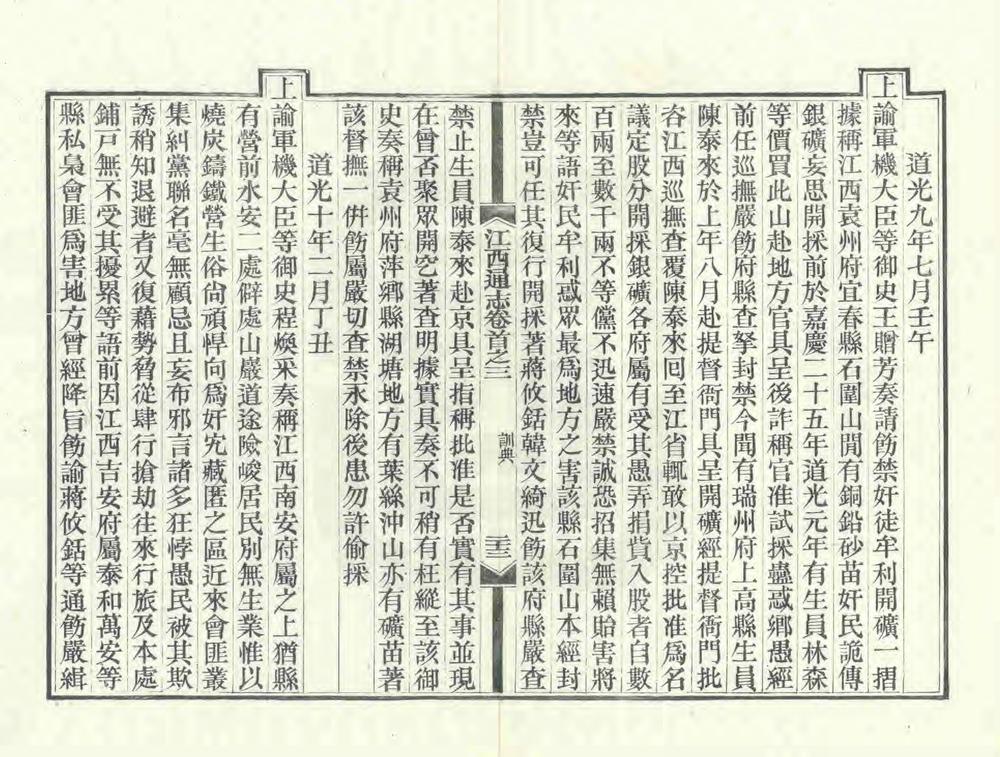 道光九年七月壬午
上諭軍機大臣等御史王贈芳奏請飭禁奸徒牟利開礦一摺
據稱江西袁州府宜春縣石圍山閒有銅鉛砂苗奸民詭傳
銀礦妄思開採前於嘉慶二十五年道光元年有生員林森
等價買此山赴地方官具呈後詐稱官准試採蠱惑鄉愚經
前任巡撫嚴飭府縣查拏封禁今聞有瑞州府上高縣生員
陳泰來於上年八月赴提督衙門具呈開礦經提督衙門批
咨江西巡撫查覆陳泰來回至江省輒敢以京控批准爲名
議定股分開採銀礦各府屬有受其愚弄捐貲入股者自數
百兩至數千兩不等儻不迅速嚴禁誠恐招集無賴貽害將
來等語奸民牟利惑眾最爲地方之害該縣石圍山本經封
禁豈可任其復行開採著蔣攸銛韓文綺迅飭該府縣嚴查
江西通志卷首之三
訓典
三
禁止生員陳泰來赴京具呈指稱批准是否實有其事並現
在曾否聚眾開穵著查明據實具奏不可稍有枉縱至該御
史奏稱袁州府萍鄉縣湖塘地方有葉絲沖山亦有礦苗著
該督撫一併飭屬嚴切查禁永除後患勿許偷採
道光十年二月丁丑
上諭軍機大臣等御史程煥采奏稱江西南安府屬之上猶縣
有營前水安二處僻處山巖道途險峻居民別無生業惟以
燒炭鑄鐵營生俗尙頑悍向爲奸宄藏匿之區近來會匪叢
集糾黨聯名毫無顧忌且妄布邪言諸多狂悖愚民被其欺
誘稍知退避者又復藉勢脅從肆行搶劫往來行旅及本處
鋪戸無不受其擾累等語前因江西吉安府屬泰和萬安等
縣私梟會匪爲害地方曾經降旨飭諭蔣攸銛等通飭嚴緝